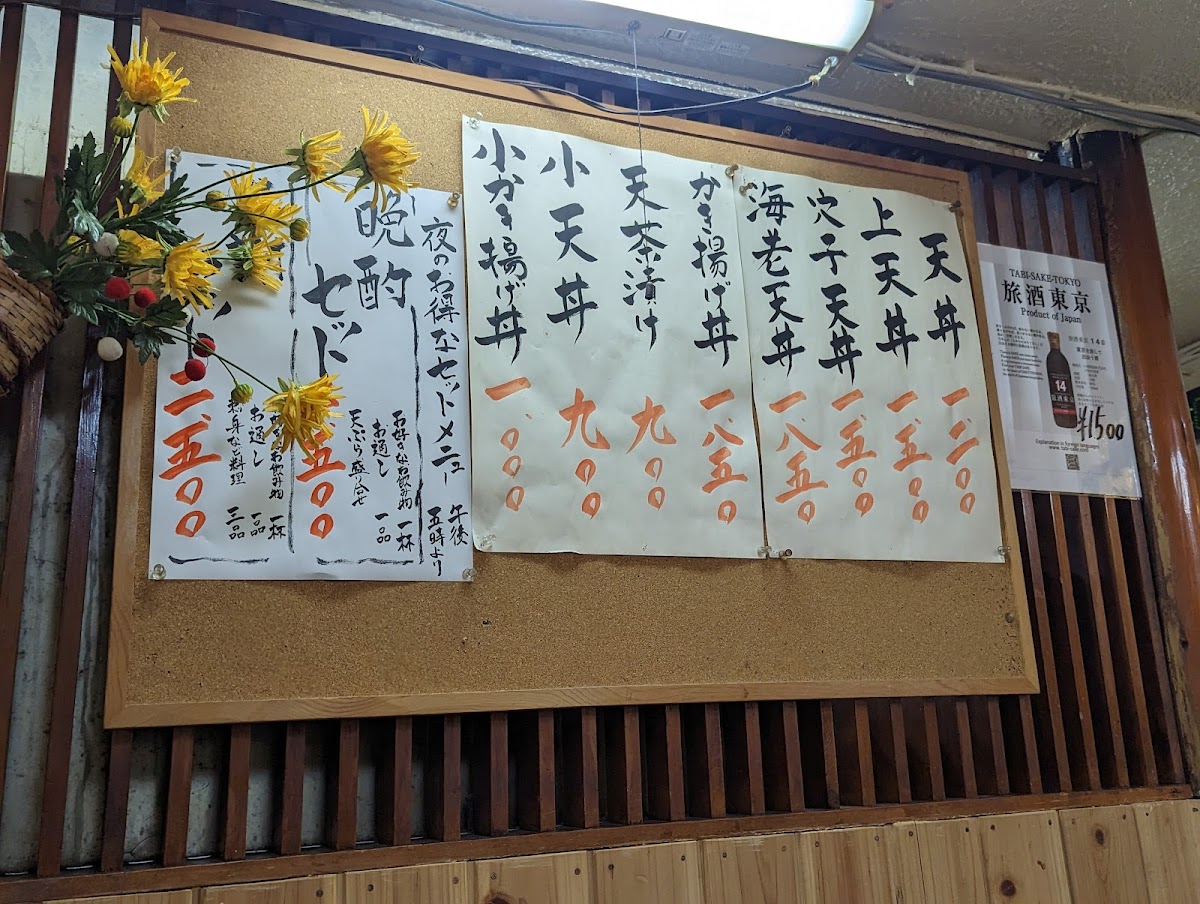 TABI-SAKE-TOKYO
旅酒東京
Product of Japan
14
¥1500
Explanation in foreign languages
www.tabi-sake.com
天丼 一、二〇〇
上天丼 一、五〇〇
穴子天丼 一、五〇〇
海老天丼 一、八五〇
かき揚げ丼 一、八五〇
天茶漬け 九〇〇
小天丼 九〇〇
小かき揚げ丼 一、〇〇〇
夜のお得なセットメニュー 午後五時より
晩酌セット 五〇〇
お好きなお飲み物 一杯
お通し 一品
天ぷら盛り合せ
お飲み物 一杯
お通し 一品
刺身など料理 三品
一、五〇〇